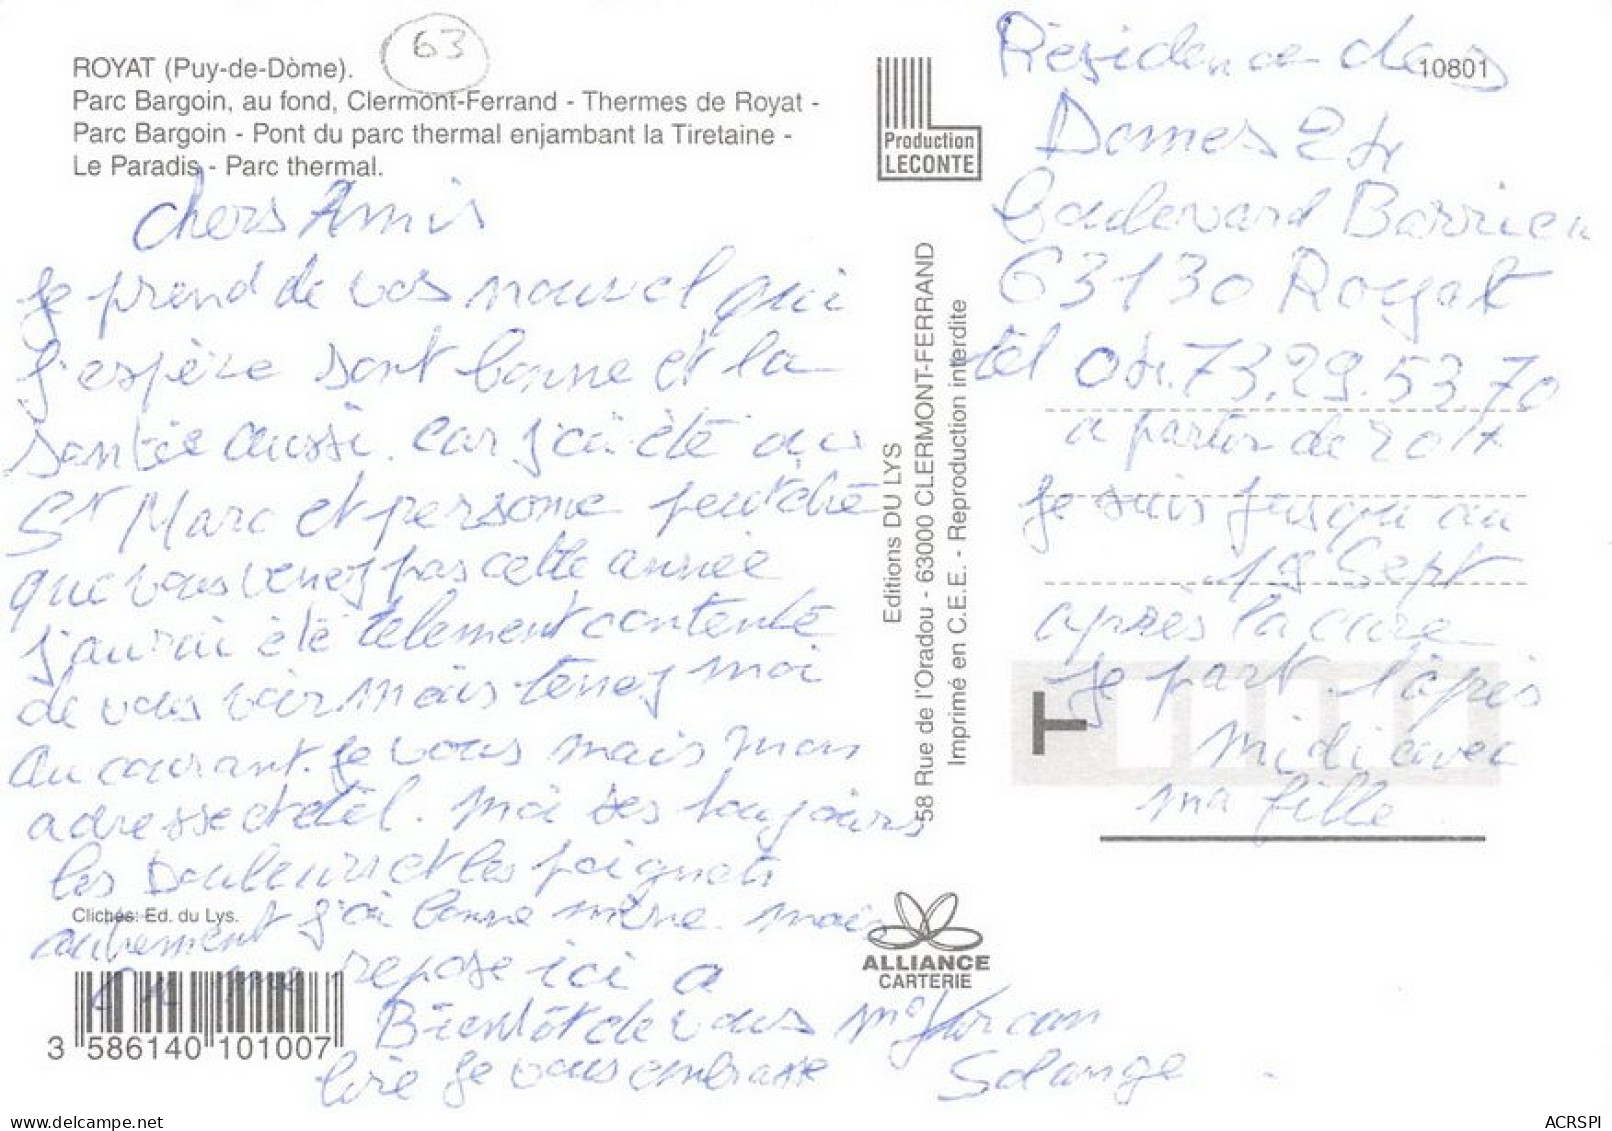 ROYAT (Puy-de-Dòme).
63
Parc Bargoin, au fond, Clermont-Ferrand - Thermes de Royat -
Parc Bargoin - Pont du parc thermal enjambant la Tiretaine -
Le Paradis - Parc thermal.
chers Amis
Je prend de vos nouvel qui
J'espère sont bonne et la
santée aussi. car j'ai été au
St Marc et persone
que vous venez pas cette année
j'aurai été telement contente
de vous voir mais tenez moi
au courant. Je vous mais mon
adresse et tèl. moi ses toujours
les Douleurs et les poignets
autrement j'ai bonne mine. mais
on me repose ici a
Bientôt de vous
lire Je vous embrasse
Solange
Clichés: Ed. du Lys.
3 586140 101007
Production
LECONTE
Editions DU LYS
58 Rue de l'Oradou - 63000 CLERMONT-FERRAND
Imprimé en C.E.E. - Reproduction interdite
ALLIANCE
CARTERIE
10801
Résidence des
Domes 24
boulevard Barrieu
63130 Royat
tél 04.73.29.53.70
a partir de 20H
Je suis jusqu au
19 Sept
après la cure
Je part l'après
midi avec
ma fille
T
delcampe.net
ACRSPI